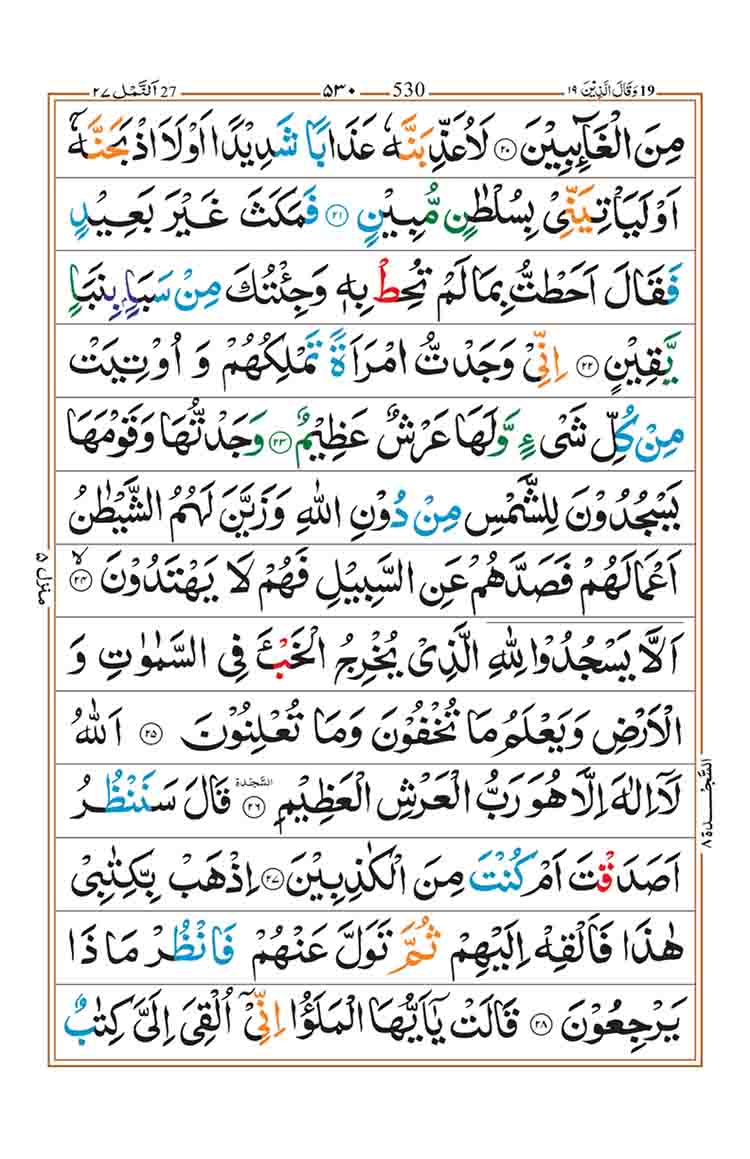 19 وَقَالَ الَّذِيْنَ ١٩ 530 ٥٣٠ 27 اَلنَّمْل ٢٧
مِنَ الْغَآئِبِيْنَ ٢٠ لَاُعَذِّبَنَّهٗ عَذَابًا شَدِيْدًا اَوْ لَاَاذْبَحَنَّهٗۤ
اَوْ لَيَاْتِيَنِّيْ بِسُلْطٰنٍ مُّبِيْنٍ ٢١ فَمَكَثَ غَيْرَ بَعِيْدٍ
فَقَالَ اَحَطْتُّ بِمَا لَمْ تُحِطْ بِهٖ وَجِئْتُكَ مِنْ سَبَاٍۭ بِنَبَاٍ
يَّقِيْنٍ ٢٢ اِنِّيْ وَجَدْتُّ امْرَاَةً تَمْلِكُهُمْ وَ اُوْتِيَتْ
مِنْ كُلِّ شَيْءٍ وَّلَهَا عَرْشٌ عَظِيْمٌ ٢٣ وَجَدْتُّهَا وَقَوْمَهَا
يَسْجُدُوْنَ لِلشَّمْسِ مِنْ دُوْنِ اللّٰهِ وَزَيَّنَ لَهُمُ الشَّيْطٰنُ
اَعْمَالَهُمْ فَصَدَّهُمْ عَنِ السَّبِيْلِ فَهُمْ لَا يَهْتَدُوْنَ ٢٤ لا
اَلَّا يَسْجُدُوْا لِلّٰهِ الَّذِيْ يُخْرِجُ الْخَبْءَ فِي السَّمٰوٰتِ وَ
الْاَرْضِ وَيَعْلَمُ مَا تُخْفُوْنَ وَمَا تُعْلِنُوْنَ ٢٥ اَللّٰهُ
لَاۤ اِلٰهَ اِلَّا هُوَ رَبُّ الْعَرْشِ الْعَظِيْمِ ٢٦ السَّجْدَة قَالَ سَنَنْظُرُ
اَصَدَقْتَ اَمْ كُنْتَ مِنَ الْكٰذِبِيْنَ ٢٧ اِذْهَبْ بِّكِتٰبِيْ
هٰذَا فَاَلْقِهْ اِلَيْهِمْ ثُمَّ تَوَلَّ عَنْهُمْ فَانْظُرْ مَا ذَا
يَرْجِعُوْنَ ٢٨ قَالَتْ يٰۤاَيُّهَا الْمَلَؤُا اِنِّيْۤ اُلْقِيَ اِلَيَّ كِتٰبٌ
منزل ٥
السَّجْدة ٨